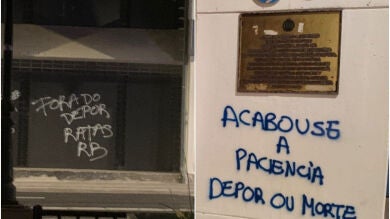 FORA DO
DEPOR
RATAS
RB
ACABOUSE
A
PACIENCIA
DEPOR OU MORTE